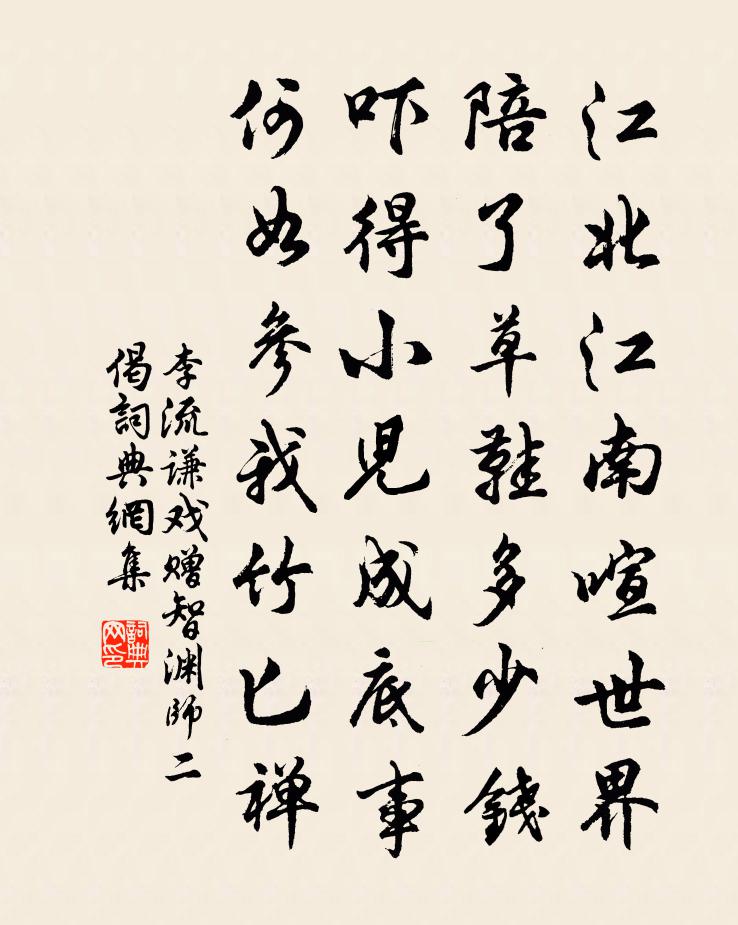 江北江南喧世界
陪了草鞋多少錢
吓得小兒成底事
何如參我竹匕禅
李流谦戏赠智渊師二
偈詞典網集
詞典网印